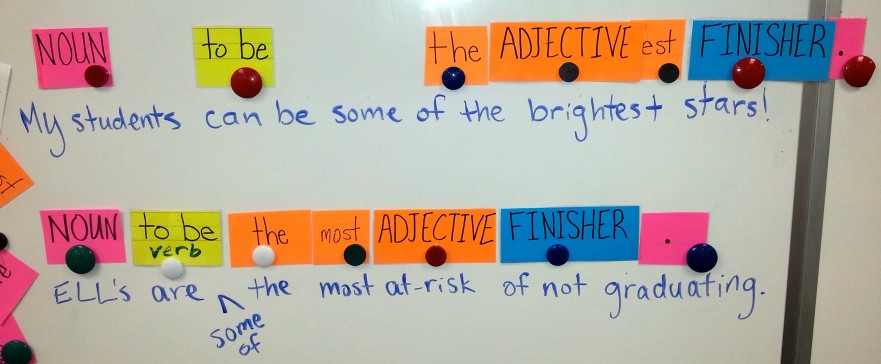 NOUN to be the ADJECTIVE est FINISHER .
My students can be some of the brightest stars!
NOUN to be the most ADJECTIVE FINISHER .
verb
ELL's are ^ the most at-risk of not graduating.
some
of